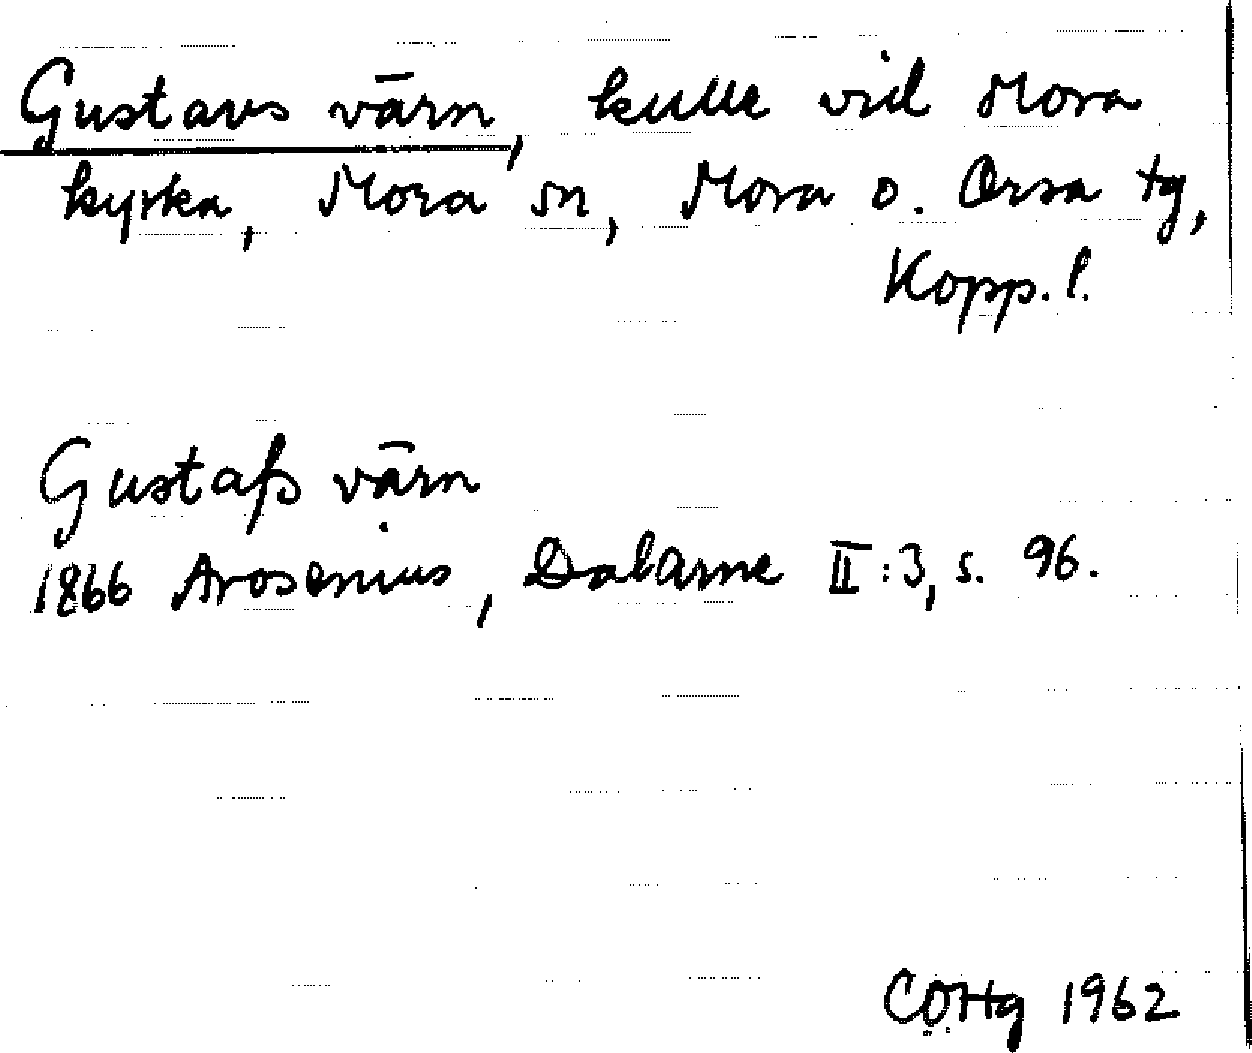 Gustavs värn, kulle vid Mora
kyrka, Mora sn, Mora o. Orsa tg,
Kopp. l.
Gustafs värn
1866 Arosenius, Dalarne II:3, s. 96.
1962